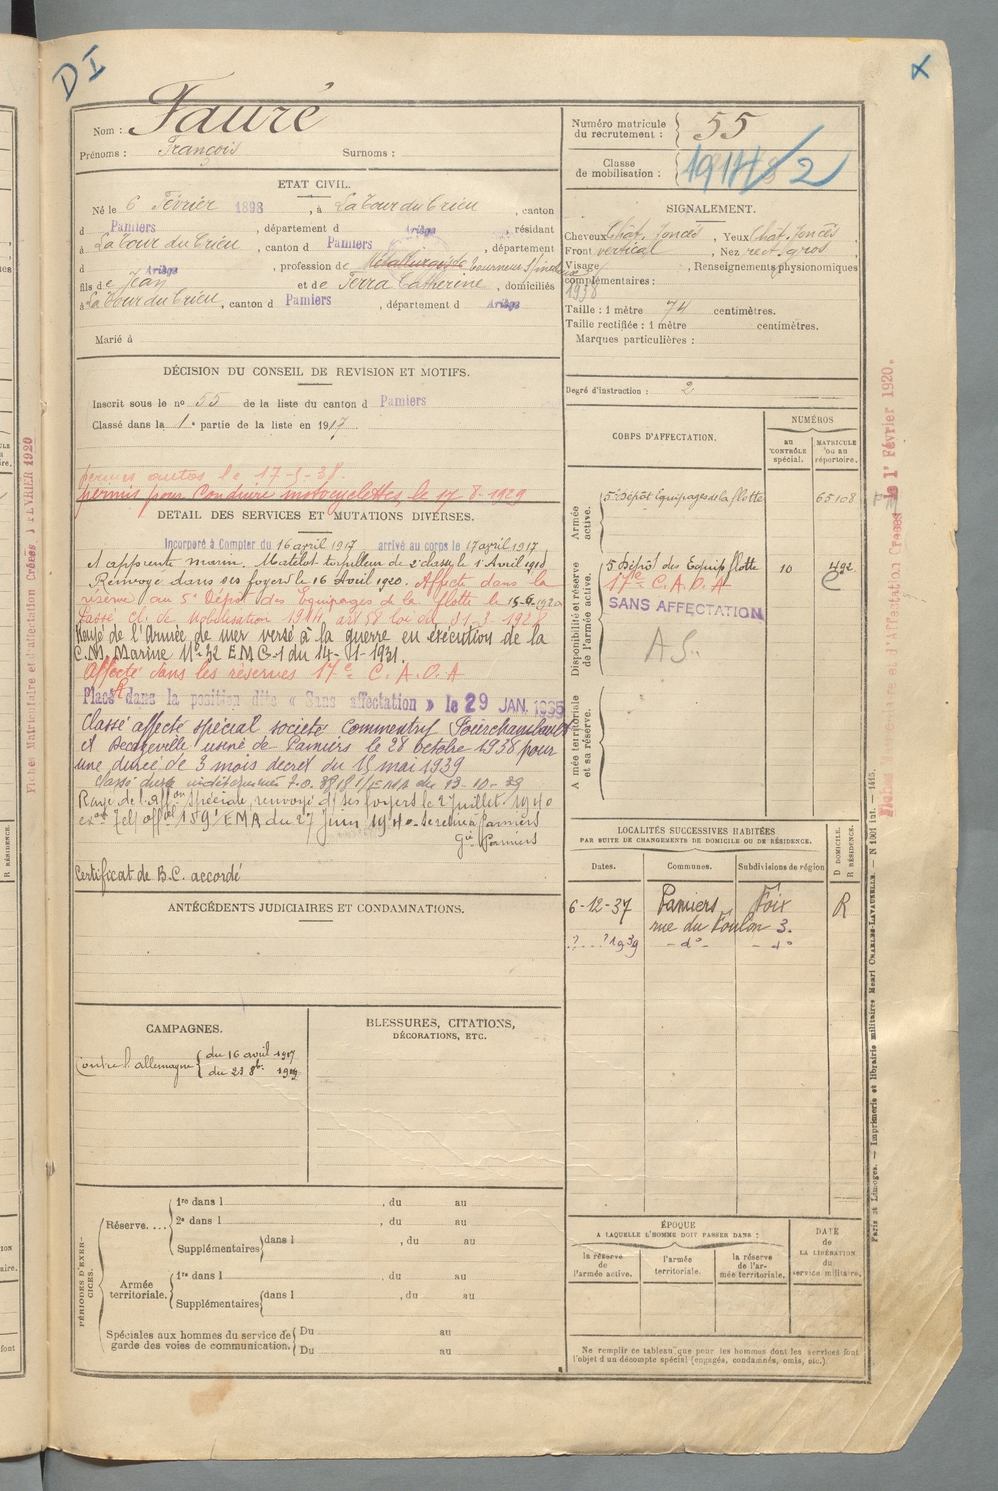 DI
X
Nom : Fauré
Prénoms : François Surnoms :
Numéro matricule du recrutement : 55
Classe de mobilisation : 2
ETAT CIVIL.
Né le 6 Février 1898, à La Tour du Crieu, canton
d Pamiers, département d Ariège, résidant
à La Tour du Crieu, canton d Pamiers, département
d Ariège, profession de tourneur
fils de Jean et de Terra Catherine, domiciliés
à La Tour du Crieu, canton d Pamiers, département d Ariège
Marié à
SIGNALEMENT.
Cheveux Chât. foncés, Yeux Chât. foncés,
Front vertical, Nez rect. gros
Visage, Renseignements physionomiques
complémentaires :
1938
Taille : 1 mètre 74 centimètres.
Taille rectifiée : 1 mètre centimètres.
Marques particulières :
Degré d'instruction : 2
DÉCISION DU CONSEIL DE REVISION ET MOTIFS.
Inscrit sous le no 55 de la liste du canton d Pamiers
Classé dans la 1e partie de la liste en 1917
permis autos le 17-3-38.
permis pour Conduire motocyclettes, le 17-8-1929
DETAIL DES SERVICES ET MUTATIONS DIVERSES.
Incorporé à Compter du 16 avril 1917 arrivé au corps le 17 avril 1917
et apprenti marin. Matelot torpilleur de 2e classe le 1 Avril 1918
Renvoyé dans ses foyers le 16 Avril 1920. Affecté dans la
réserve au 5e Dépôt des Équipages de la flotte le 15-6-1920
Passé cl. de Mobilisation 1914 art 58 loi du 31-3-1928
Rayé de l'Armée de mer versé à la guerre en exécution de la
C.M. Marine No 32 EMG-1 du 14-11-1931.
Affecté dans les réserves 17e C.A.O.A
Placé dans la position dite « Sans affectation » le 29 JAN. 1935
Classé affecté spécial société Commentry Fourchambault
et Decazeville usine de Pamiers le 28 octobre 1938 pour
une durée de 3 mois décret du 15 mai 1939
Rayé de l'affon spéciale, renvoyé ds ses foyers le 2 Juillet 1940
159 1/EMA du 27 Juin 1940. se retire à Pamiers
Gie Pamiers
Certificat de B.C. accordé
CORPS D'AFFECTATION.
NUMÉROS
au CONTRÔLE spécial.
MATRICULE ou au répertoire.
Armée active.
5e Dépôt Equipages de la flotte 65108
Disponibilité et réserve de l'armée active.
5 Dépôt des Équip flotte 10 492
17e C.A.O.A
SANS AFFECTATION
A S.
Armée territoriale et sa réserve.
LOCALITÉS SUCCESSIVES HABITÉES
PAR SUITE DE CHANGEMENTS DE DOMICILE OU DE RÉSIDENCE.
Dates. Communes. Subdivisions de région
D DOMICILE. R RÉSIDENCE.
6-12-37 Pamiers Foix R
rue du Foulon 3.
?...? 1939 - do - - do
ANTÉCÉDENTS JUDICIAIRES ET CONDAMNATIONS.
CAMPAGNES.
Contre l'allemagne du 16 avril 1917
du 23 8bre 1919
BLESSURES, CITATIONS,
DÉCORATIONS, ETC.
PÉRIODES D'EXERCICES.
Réserve....
1re dans l , du au
2e dans l , du au
Supplémentaires dans l , du au
Armée territoriale.
1re dans l , du au
Supplémentaires dans l , du au
Spéciales aux hommes du service de garde des voies de communication. Du au
Du au
ÉPOQUE
A LAQUELLE L'HOMME DOIT PASSER DANS :
la réserve de l'armée active.
l'armée territoriale.
la réserve de l'armée territoriale.
DATE de LA LIBÉRATION du service militaire.
Ne remplir ce tableau que pour les hommes dont les services font
l'objet d'un décompte spécial (engagés, condamnés, omis, etc.).
Paris et Limoges. — Imprimerie et librairie militaires Henri CHARLES-LAVAUZELLE. — N 1001 int. — 1415.
Fiches Matriculaire et d'Affectation Créées le 1er Février 1920.
Fiches Matriculaire et d'affectation Créées 1 FEVRIER 1920